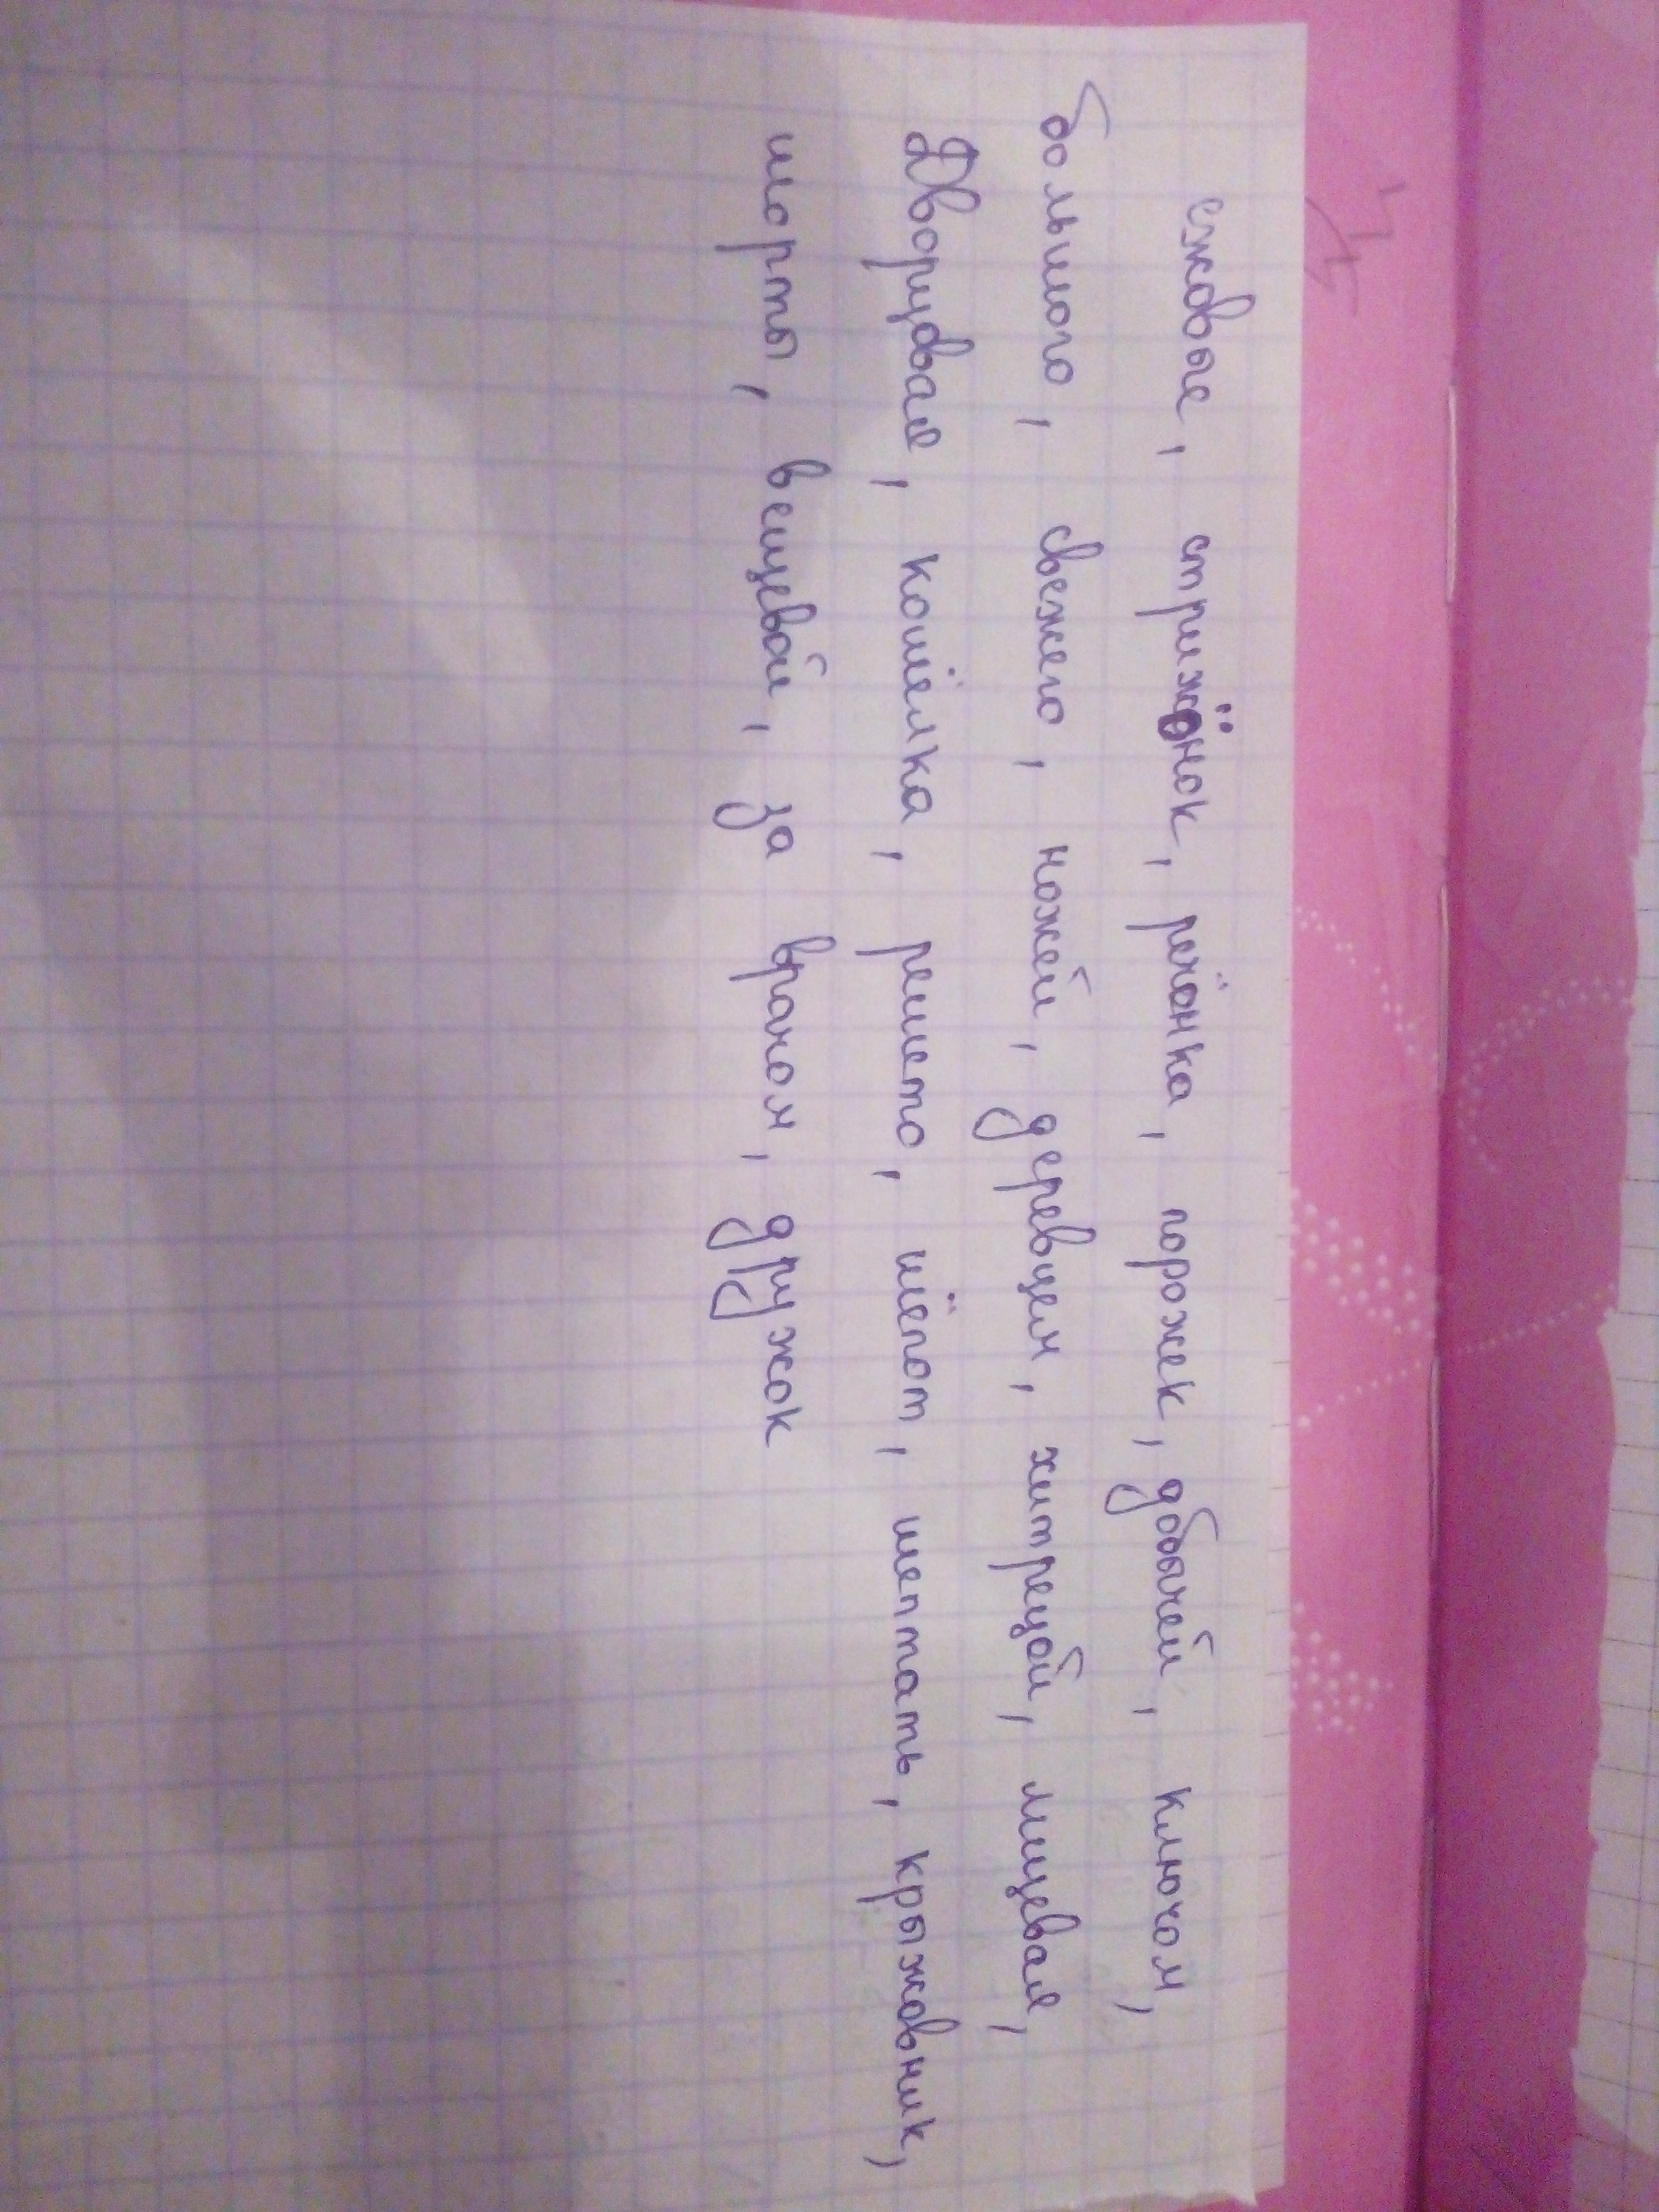 ежовые, стрижонок, речонка, порожек, добычей, ключом,
большого, свежего, ножей, деревцем, хитрецой, лицевая,
Дворцовая, кошёлка, решето, шёпот, шептать, крыжовник,
шорты, вещевой, за врачом, дружок